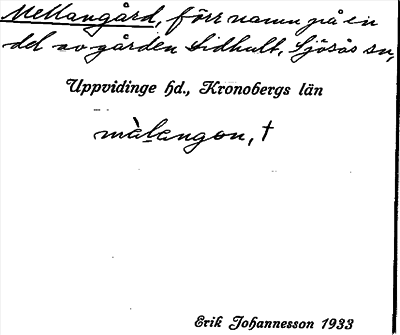 Mellangård, förr namn på en
del av gården Sidhult, Sjösås sn,
Uppvidinge hd., Kronobergs län
màlangon, †
Erik Johannesson 1933